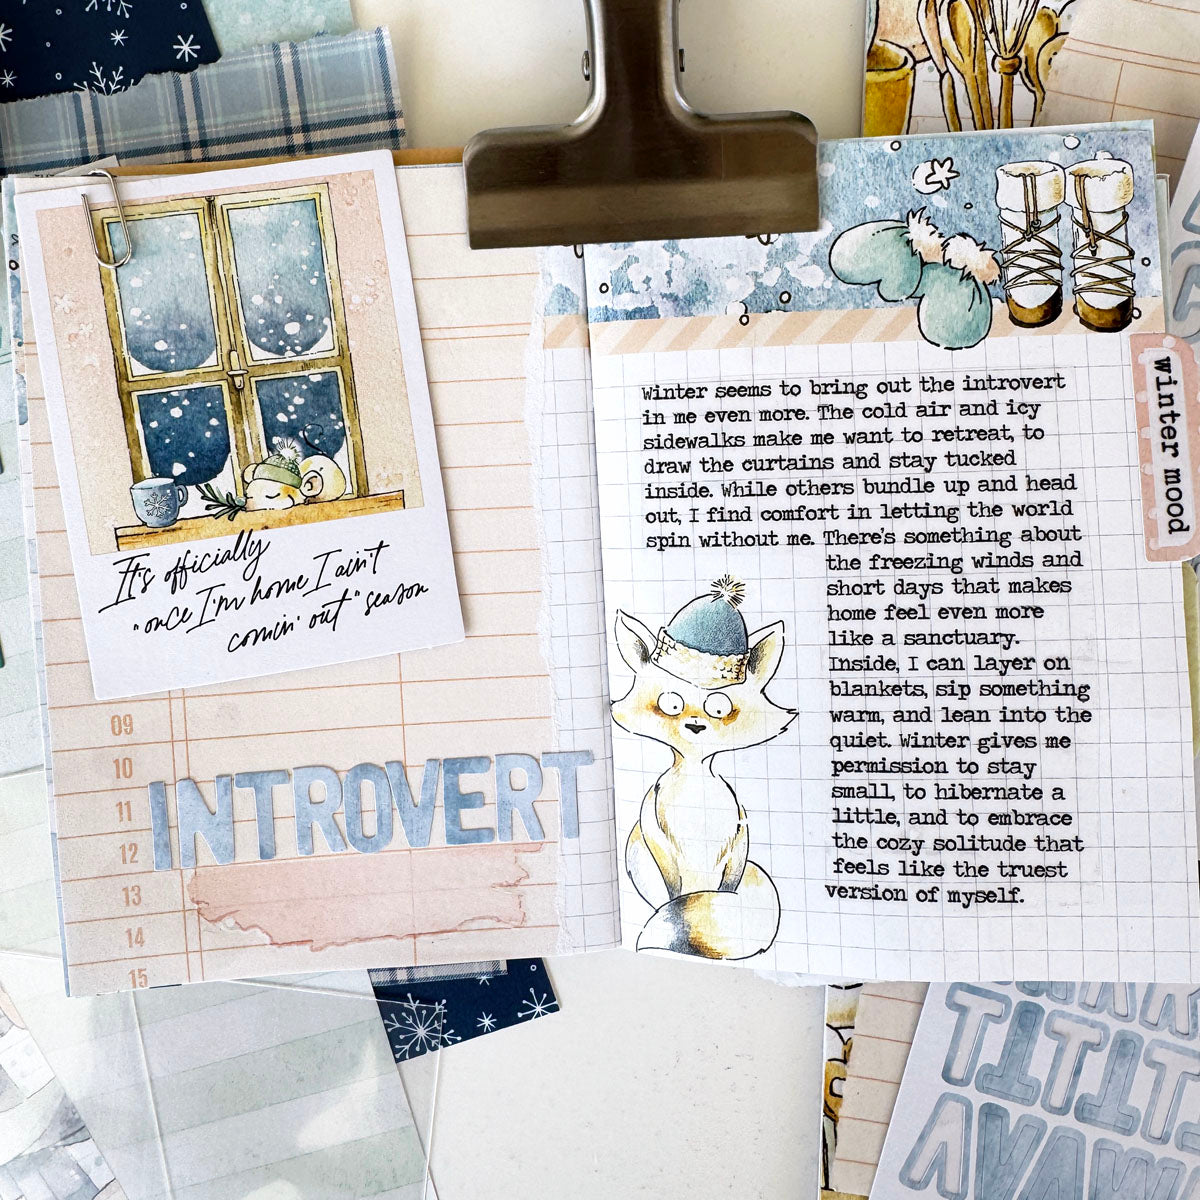 It's officially
"once I'm home I ain't
comin' out" season
09
10
11
12
13
14
15
INTROVERT
Winter seems to bring out the introvert
in me even more. The cold air and icy
sidewalks make me want to retreat, to
draw the curtains and stay tucked
inside. While others bundle up and head
out, I find comfort in letting the world
spin without me. There's something about
the freezing winds and
short days that makes
home feel even more
like a sanctuary.
Inside, I can layer on
blankets, sip something
warm, and lean into the
quiet. Winter gives me
permission to stay
small, to hibernate a
little, and to embrace
the cozy solitude that
feels like the truest
version of myself.
winter mood